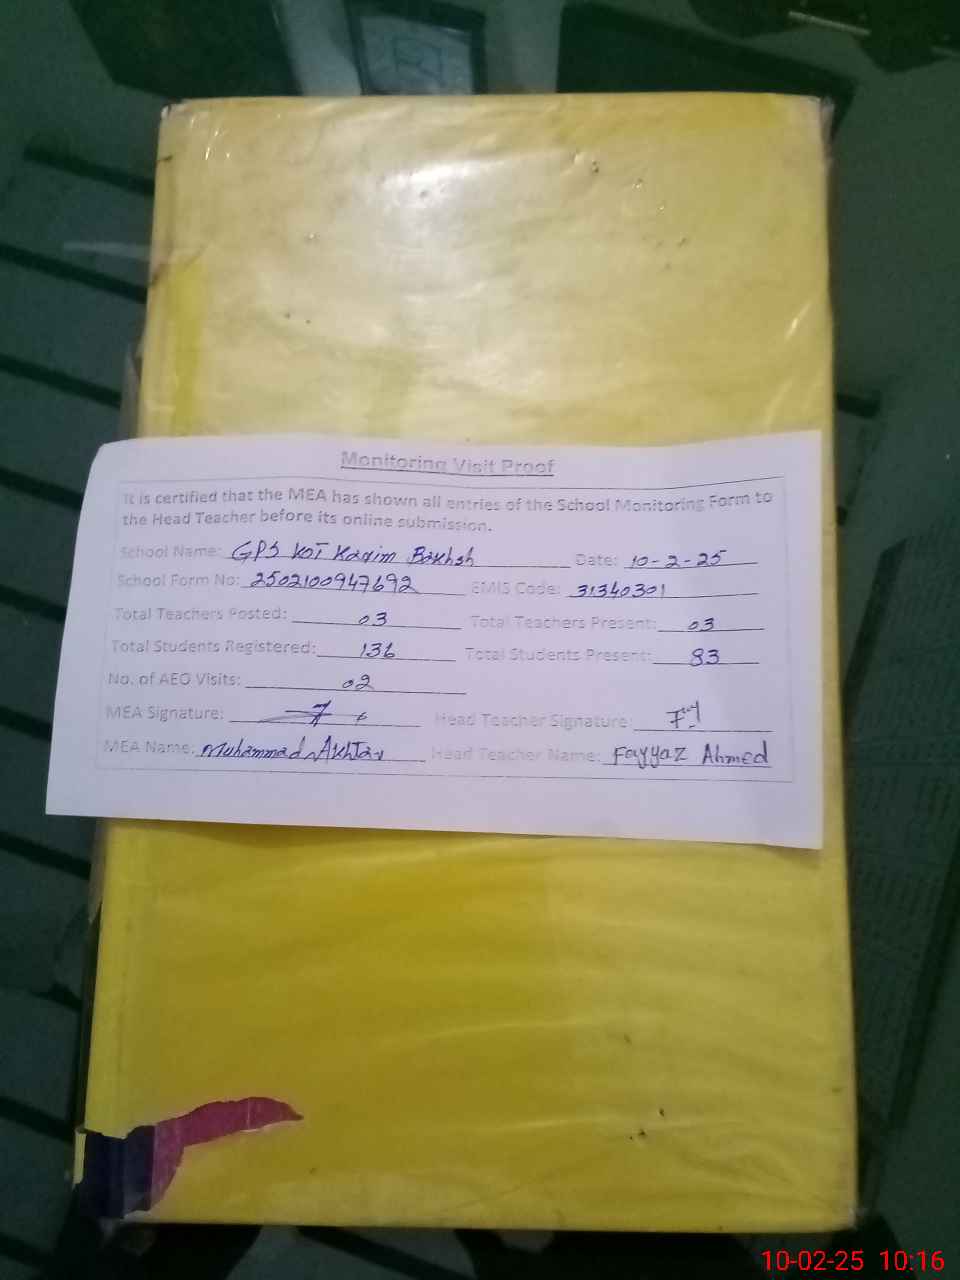 Monitoring Visit Proof
It is certified that the MEA has shown all entries of the School Monitoring Form to
the Head Teacher before its online submission.
School Name: GPS KOT Karim Bakhsh Date: 10-2-25
School Form No: 2502100947692 EMIS Code: 31340301
Total Teachers Posted: 03 Total Teachers Present: 03
Total Students Registered: 136 Total Students Present: 83
No. of AEO Visits: 02
MEA Signature: Head Teacher Signature:
MEA Name: Muhammad Akhtar Head Teacher Name: Fayyaz Ahmed
10-02-25 10:16